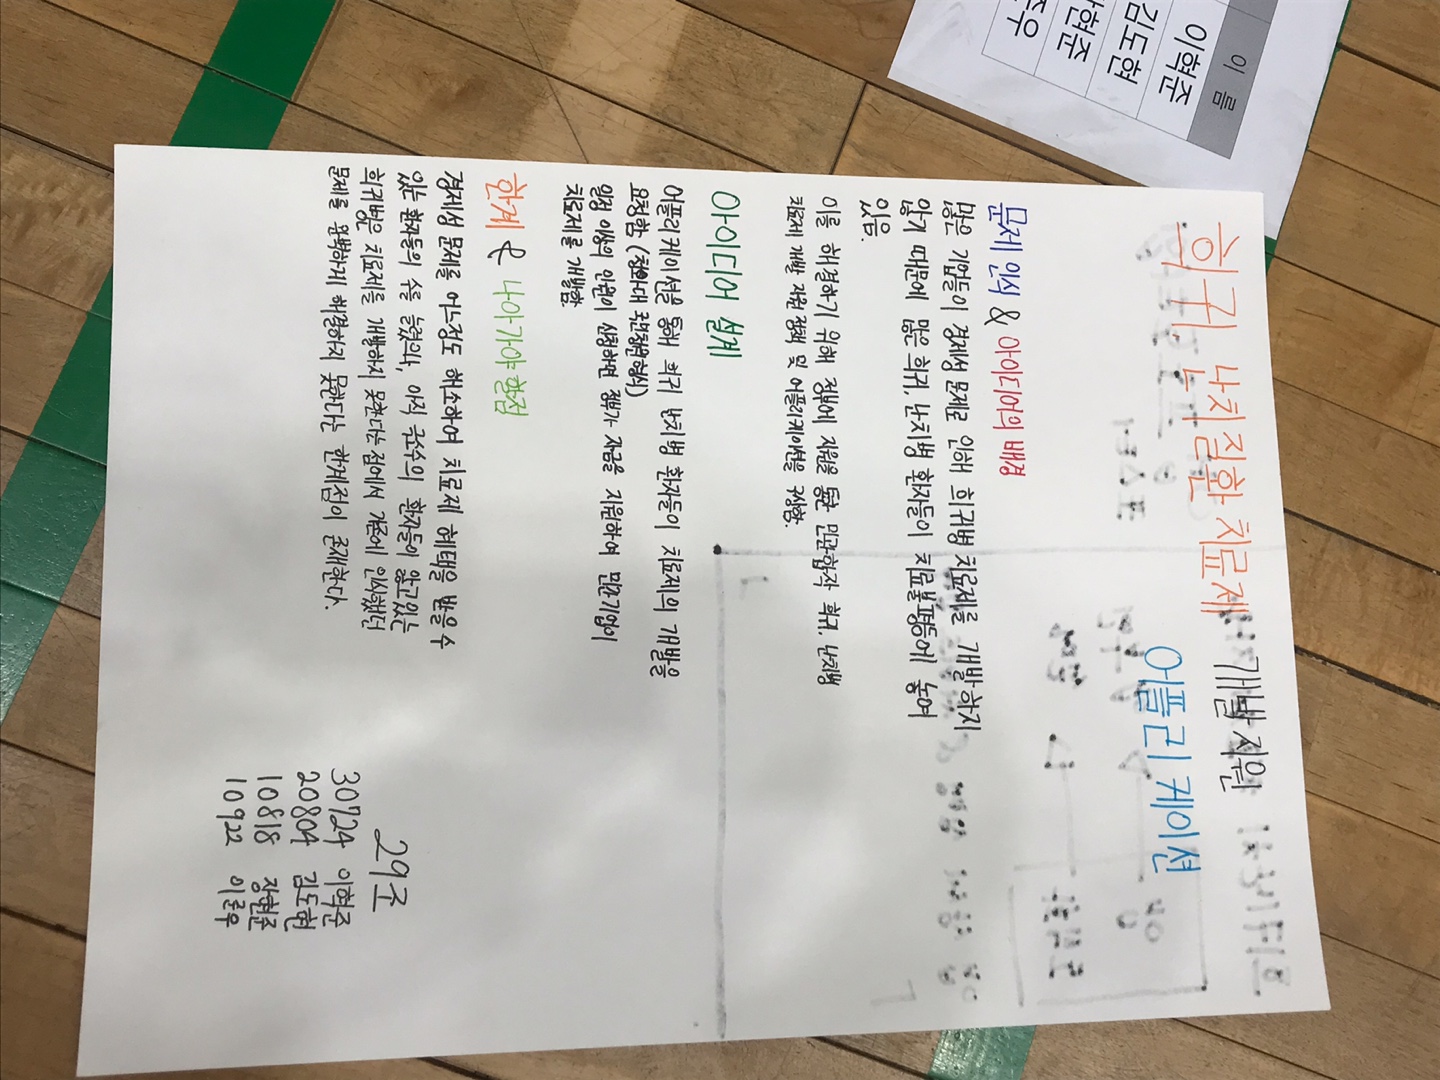 희귀 난치질환 치료제 개발 지원
어플리케이션
문제 인식 & 아이디어의 배경
많은 기업들이 경제성 문제로 인해 희귀병 치료제를 개발하지
않기 때문에 많은 희귀, 난치병 환자들이 치료불평등에 놓여
있음.
이를 해결하기 위해 정부에 지원을 통한 민관합작 희귀, 난치병
치료제 개발 지원 정책 및 어플리케이션을 구상함.
아이디어 설계
어플리케이션을 통해 희귀 난치병 환자들이 치료제의 개발을
요청함 (청와대 국민청원형식)
일정 이상의 인원이 신청하면 정부가 자금을 지원하여 민간기업이
치료제를 개발함.
한계 & 나아가야 할 점
경제성 문제를 어느정도 해소하여 치료제 혜택을 받을 수
있는 환자들의 수를 늘렸으나, 아직 극소수의 환자들이 앓고있는
희귀병은 치료제를 개발하지 못한다는 점에서 기존에 인식했던
문제를 완벽하게 해결하지 못한다는 한계점이 존재한다.
29조
30724 이혁준
20804 김도현
10818 장현준
10922 이준우
이 름
이혁준
김도현
현준
준우